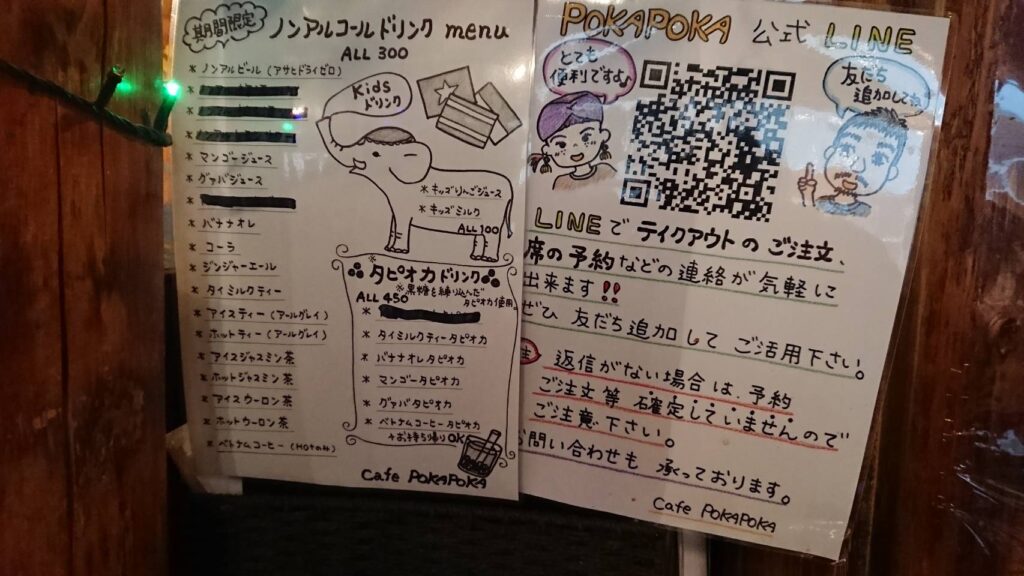 期間限定
ノンアルコールドリンク menu
ALL 300
* ノンアルビール (アサヒドライゼロ)
* マンゴージュース
* グァバジュース
* バナナオレ
* コーラ
* ジンジャーエール
* タイミルクティー
* アイスティー (アールグレイ)
* ホットティー (アールグレイ)
* アイスジャスミン茶
* ホットジャスミン茶
* アイスウーロン茶
* ホットウーロン茶
* ベトナムコーヒー (HOTのみ)
Kids
ドリンク
* キッズりんごジュース
* キッズミルク
ALL 100
タピオカドリンク
※黒糖を練り込んだ
タピオカ使用
ALL 450
* タイミルクティータピオカ
* バナナオレタピオカ
* マンゴータピオカ
* グァバタピオカ
* ベトナムコーヒータピオカ
お持ち帰りOK
Cafe POKAPOKA
POKAPOKA 公式 LINE
とても
便利ですよ♪
友だち
追加してね
LINEで テイクアウトのご注文、
席の予約などの連絡が気軽に
出来ます!!
ぜひ 友だち追加して ご活用下さい。
返信がない場合は、予約
ご注文等 確定していませんので
ご注意下さい。
お問い合わせも 承っております。
Cafe POKAPOKA